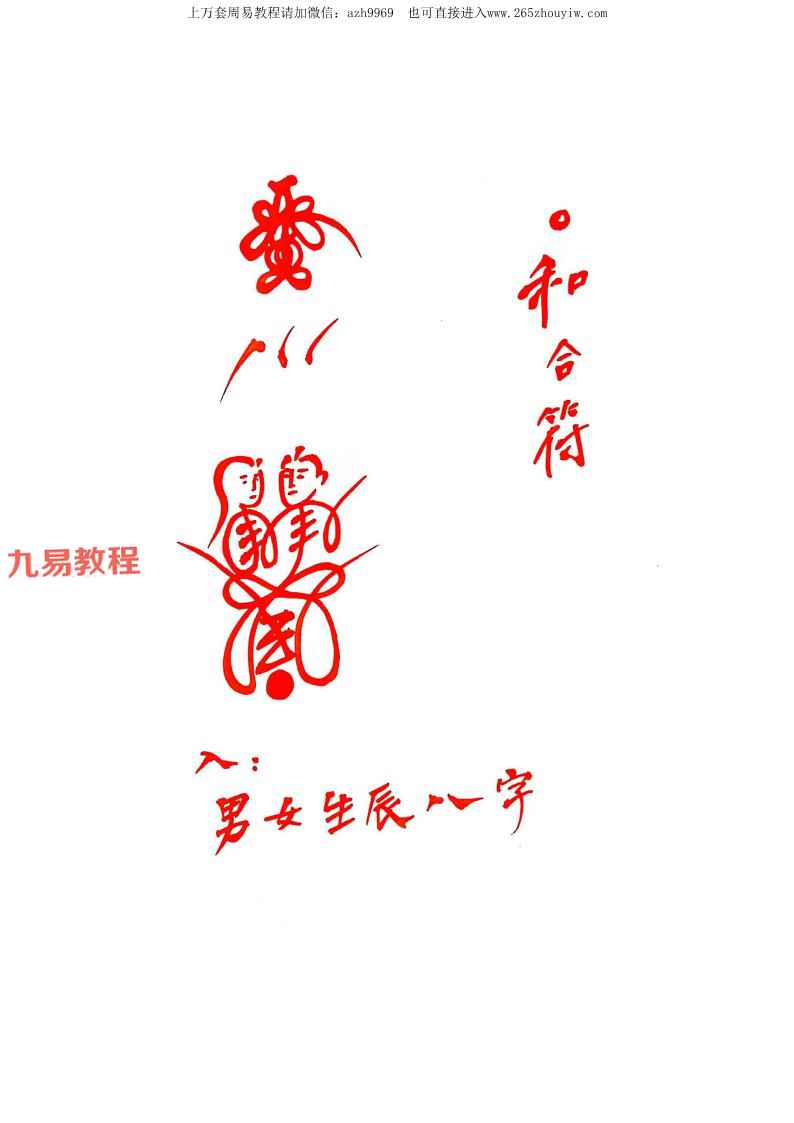 上万套周易教程请加微信：azh9969 也可直接进入www.265zhouyiw.com
和合符
九易教程
入：
男女生辰八字